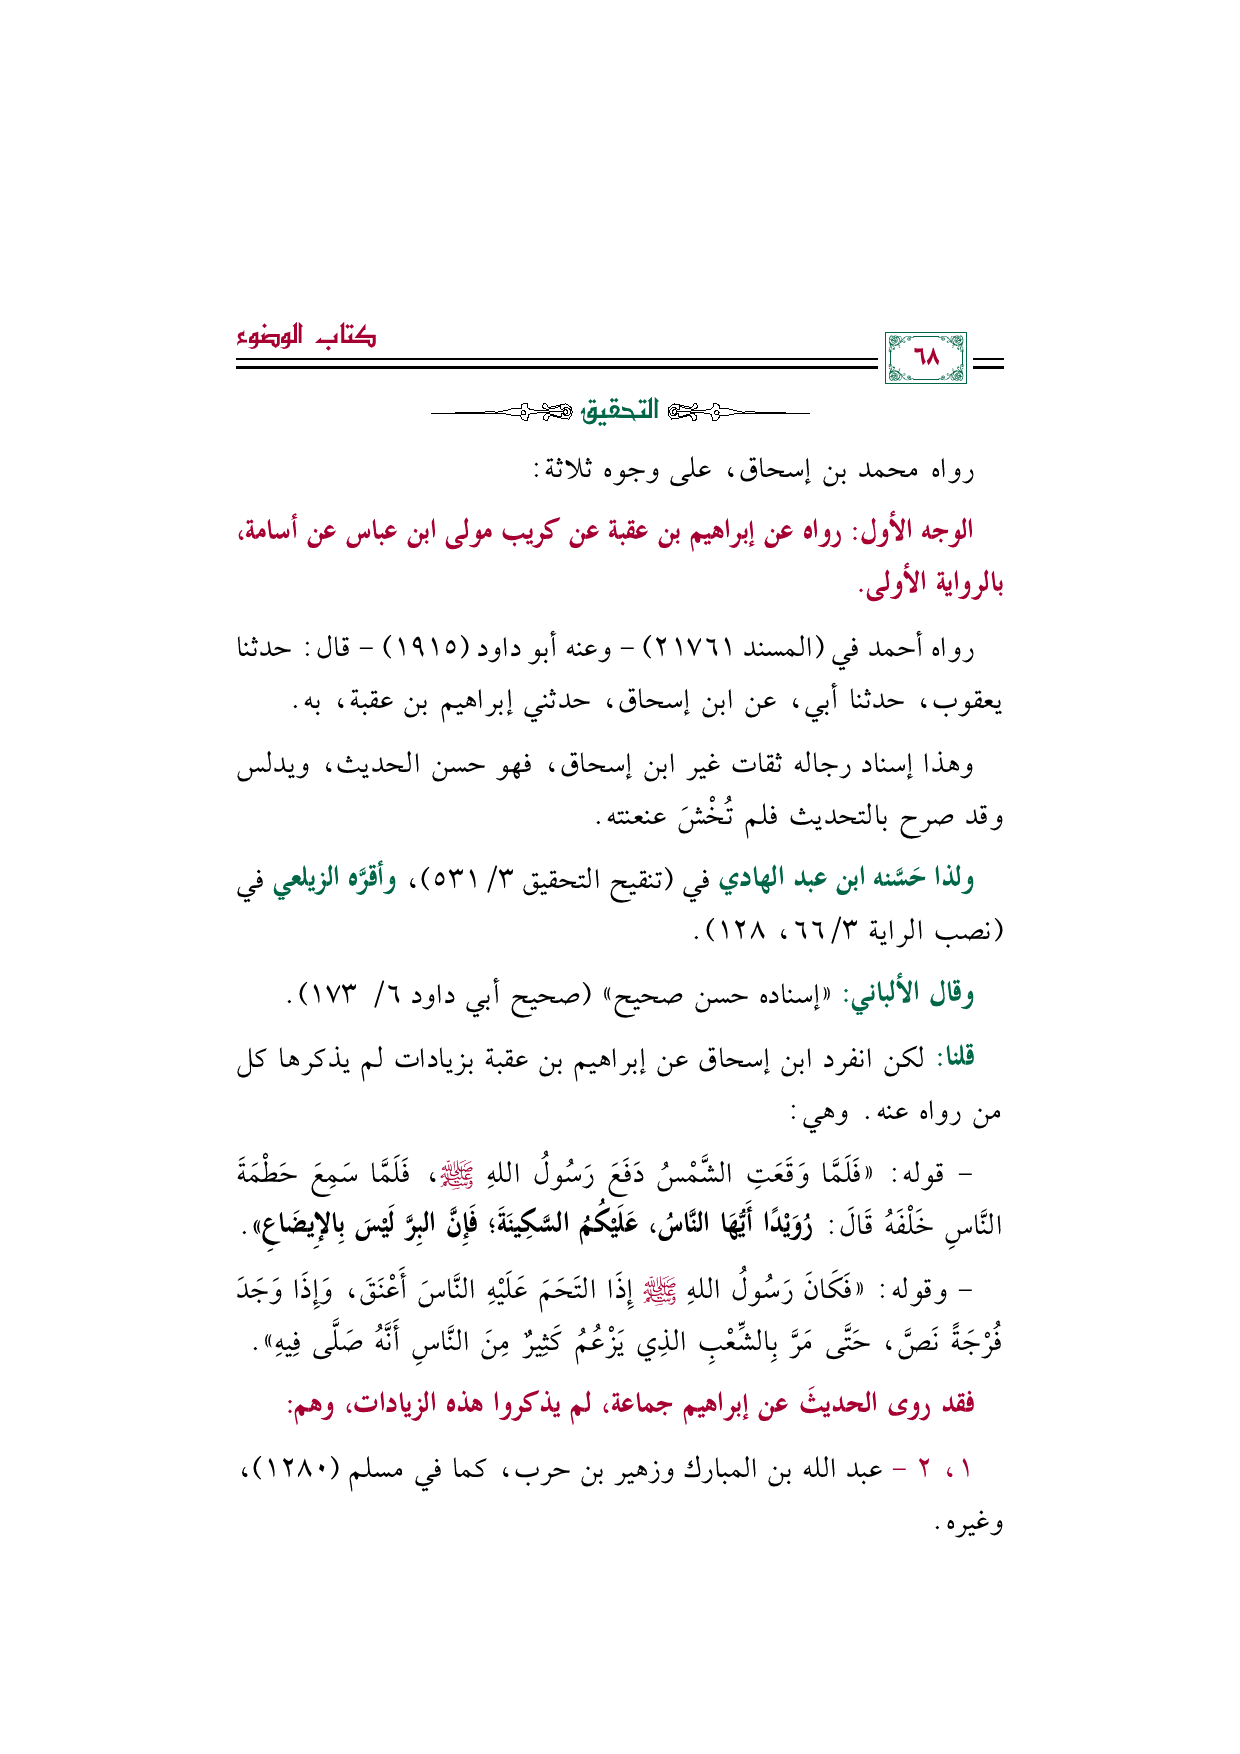 كتاب الوضوء
٦٨
التحقيق
رواه محمد بن إسحاق، على وجوه ثلاثة:
الوجه الأول: رواه عن إبراهيم بن عقبة عن كريب مولى ابن عباس عن أسامة،
بالرواية الأولى.
رواه أحمد في (المسند ٢١٧٦١) – وعنه أبو داود (١٩١٥) – قال: حدثنا
يعقوب، حدثنا أبي، عن ابن إسحاق، حدثني إبراهيم بن عقبة، به.
وهذا إسناد رجاله ثقات غير ابن إسحاق، فهو حسن الحديث، ويدلس
وقد صرح بالتحديث فلم تُخْشَ عنعنته.
ولذا حَسَّنه ابن عبد الهادي في (تنقيح التحقيق ٣/ ٥٣١)، وأقرَّه الزيلعي في
(نصب الراية ٣/ ٦٦، ١٢٨).
وقال الألباني: «إسناده حسن صحيح» (صحيح أبي داود ٦/ ١٧٣).
قلنا: لكن انفرد ابن إسحاق عن إبراهيم بن عقبة بزيادات لم يذكرها كل
من رواه عنه. وهي:
– قوله: «فَلَمَّا وَقَعَتِ الشَّمْسُ دَفَعَ رَسُولُ اللهِ ﷺ، فَلَمَّا سَمِعَ حَطْمَةَ
النَّاسِ خَلْفَهُ قَالَ: رُوَيْدًا أَيُّهَا النَّاسُ، عَلَيْكُمُ السَّكِينَةَ؛ فَإِنَّ البِرَّ لَيْسَ بِالإِيضَاعِ».
– وقوله: «فَكَانَ رَسُولُ اللهِ ﷺ إِذَا التَحَمَ عَلَيْهِ النَّاسَ أَعْنَقَ، وَإِذَا وَجَدَ
فُرْجَةً نَصَّ، حَتَّى مَرَّ بِالشِّعْبِ الذِي يَزْعُمُ كَثِيرٌ مِنَ النَّاسِ أَنَّهُ صَلَّى فِيهِ».
فقد روى الحديثَ عن إبراهيم جماعة، لم يذكروا هذه الزيادات، وهم:
١، ٢ – عبد الله بن المبارك وزهير بن حرب، كما في مسلم (١٢٨٠)،
وغيره.